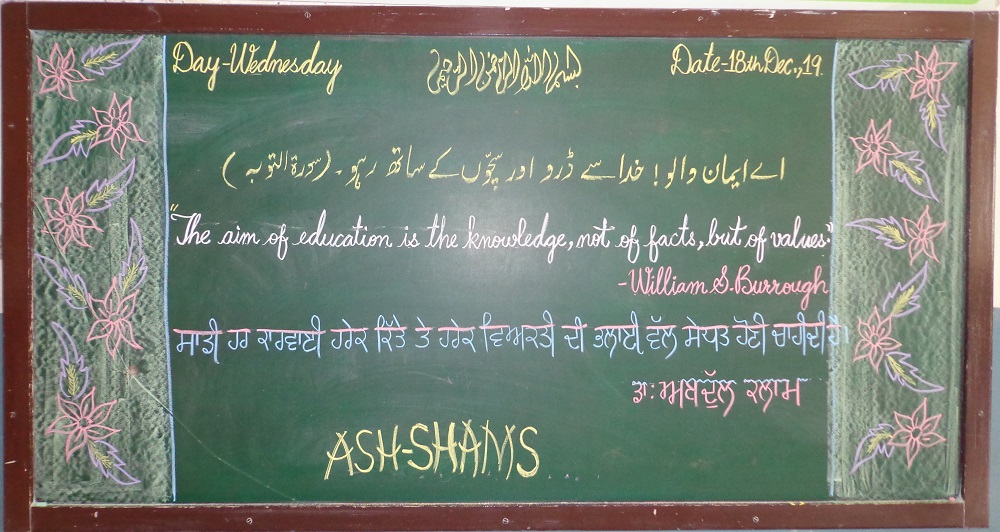 Day-Wednesday بسم الله الرحمن الرحيم Date-18th.Dec.,19.
اے ایمان والو! خدا سے ڈرو اور سچّوں کے ساتھ رہو۔ (سورۃ التوبہ)
"The aim of education is the knowledge, not of facts, but of values."
-William S. Burrough
ਸਾਡੀ ਹਰ ਕਾਰਵਾਈ ਹਰੇਕ ਕਿੱਤੇ ਤੇ ਹਰੇਕ ਵਿਅਕਤੀ ਦੀ ਭਲਾਈ ਵੱਲ ਸੇਧਤ ਹੋਣੀ ਚਾਹੀਦੀ ਹੈ।
ਡਾ: ਅਬਦੁੱਲ ਕਲਾਮ
ASH-SHAMS